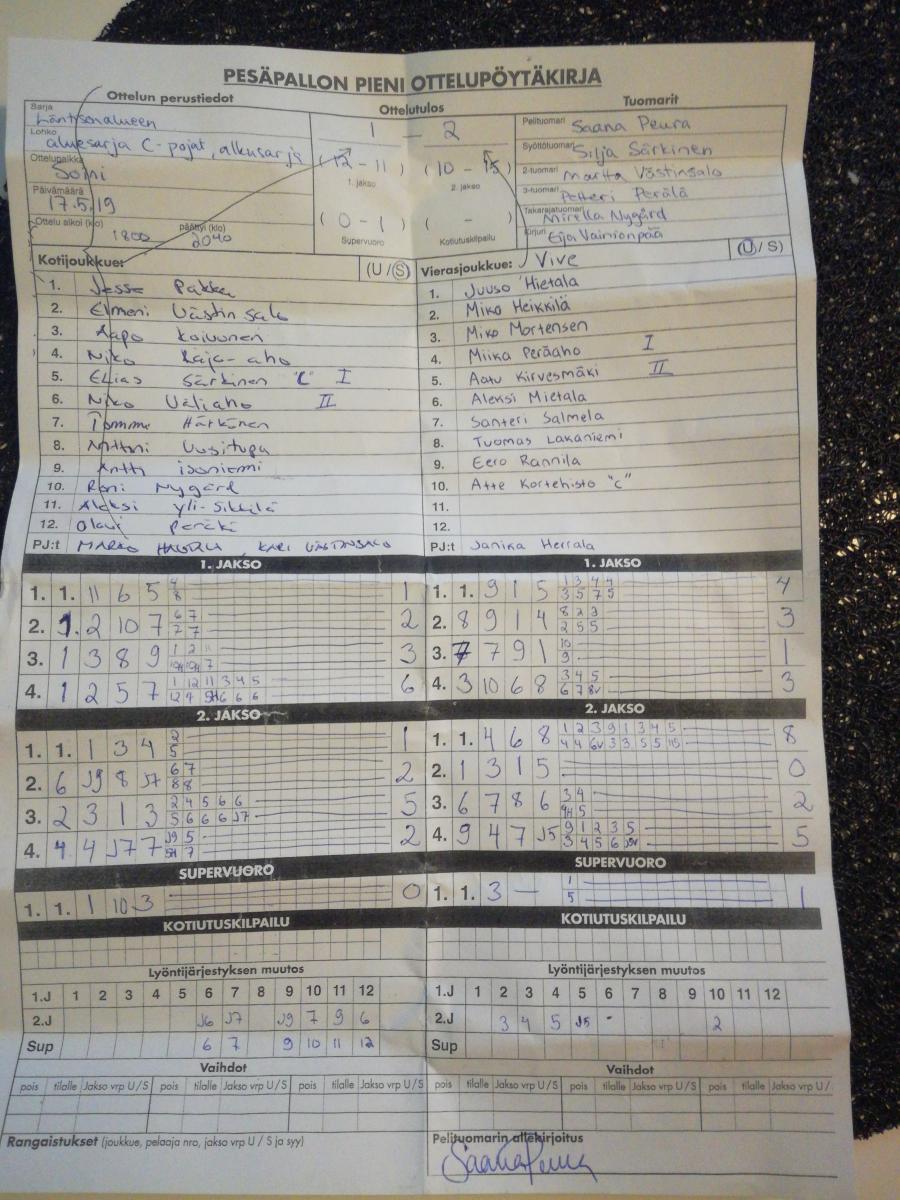 PESÄPALLON PIENI OTTELUPÖYTÄKIRJA
Ottelun perustiedot
Ottelutulos
Tuomarit
Sarja Läntisenalueen
Lohko aluesarja C-pojat, alkusarja
Ottelupaikka Soini
Päivämäärä 17.5.19
Ottelu alkoi (klo) 1800 päättyi (klo) 2040
1 - 2
(12 - 11) (10 - 15)
1. jakso 2. jakso
(0 - 1) ( - )
Supervuoro Kotiutuskilpailu
Pelituomari Saana Peura
Syöttötuomari Silja Särkinen
2-tuomari Martta Västinsalo
3-tuomari Petteri Perälä
Takarajatuomari Mirella Nygård
Kirjuri Eija Vainionpää
Kotijoukkue: (U / S)
1. Jesse Pakka
2. Elmeri Västinsalo
3. Aapo Koivunen
4. Niko Raja-aho
5. Elias Särkinen "C" I
6. Niko Väliaho II
7. Härkönen
8. Uusitupa
9. Antti isoniemi
10. Roni Nygård
11. Aleksi yli-Sikkilä
12. Olavi
PJ:t MARKO , KARI VÄSTINSALO
Vierasjoukkue: Vive (U / S)
1. Juuso Hietala
2. Miko Heikkilä
3. Miko Mortensen
4. Miika Peräaho I
5. Aatu Kirvesmäki II
6. Aleksi Mietala
7. Santeri Salmela
8. Tuomas Lakaniemi
9. Eero Rannila
10. Atte Kortehisto "C"
11.
12.
PJ:t Janika Herrala
1. JAKSO
1. 1. 11 6 5 4 1
8
2. 1. 2 10 7 6 7 2
7 7
3. 1 3 8 9 1 2 3
7
4. 1 2 5 7 1 12 11 3 4 5 6
12 4 5H 6 6 6
1. JAKSO
1. 1. 9 1 5 1 3 4 4 4
3 5 7 5
2. 8 9 1 4 8 2 3 3
2 5 5
3. 7 7 9 1 10 1
9
4. 3 10 6 8 3 4 5 3
6 7 8v
2. JAKSO
1. 1. 1 3 4 2 1
5
2. 6 J9 8 J7 6 7 2
8 8
3. 2 3 1 3 2 4 5 6 6 5
5 6 6 6 J7
4. 4 4 J7 7 J9 5 2
5H 7
2. JAKSO
1. 1. 4 6 8 1 2 3 9 1 3 4 5 8
4 4 6v 3 3 5 5
2. 1 3 1 5 0
3. 6 7 8 6 3 4 2
4H 5
4. 9 4 7 J5 9 1 2 3 5 5
3 4 5 6
SUPERVUORO
1. 1. 1 10 3 0
SUPERVUORO
1. 1. 3 — 1 1
5
KOTIUTUSKILPAILU
KOTIUTUSKILPAILU
Lyöntijärjestyksen muutos
1.J 1 2 3 4 5 6 7 8 9 10 11 12
2.J J6 J7 J9 7 9 6
Sup 6 7 9 10 11 12
Lyöntijärjestyksen muutos
1.J 1 2 3 4 5 6 7 8 9 10 11 12
2.J 3 4 5 J5 2
Sup
Vaihdot
pois tilalle Jakso vrp U / S pois tilalle Jakso vrp U / S pois tilalle Jakso vrp U / S
Vaihdot
pois tilalle Jakso vrp U / S pois tilalle Jakso vrp U / S pois tilalle Jakso vrp U /
Rangaistukset (joukkue, pelaaja nro, jakso vrp U / S ja syy)
Pelituomarin allekirjoitus
Saana Peura